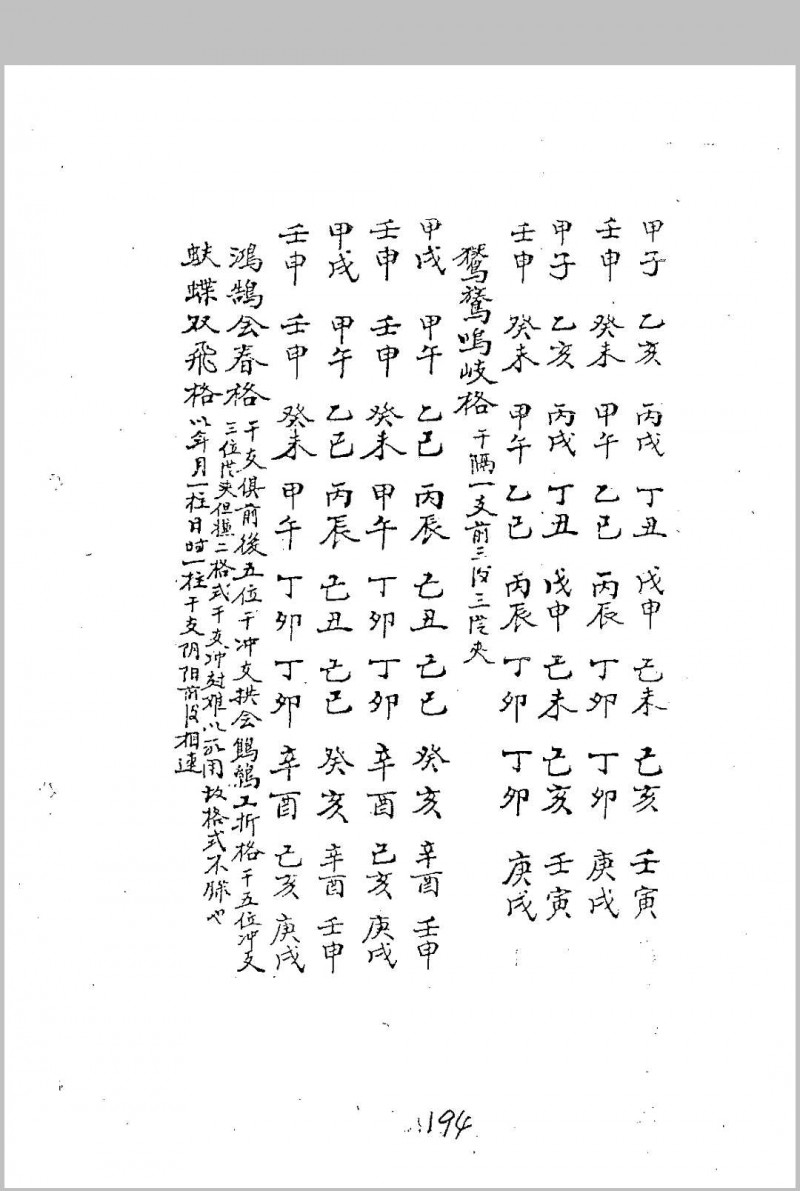 甲子 乙亥 丙戌 丁丑 戊申 己未 己亥 壬寅
壬申 癸未 甲午 乙巳 丙辰 丁卯 丁卯 庚戌
甲子 乙亥 丙戌 丁丑 戊申 己未 己亥 壬寅
壬申 癸未 甲午 乙巳 丙辰 丁卯 丁卯 庚戌
鸣岐格 干隔一支前三后三拱夹
甲戌 甲午 乙巳 丙辰 己丑 己巳 癸亥 辛酉 壬申
壬申 壬申 癸未 甲午 丁卯 丁卯 辛酉 己亥 庚戌
甲戌 甲午 乙巳 丙辰 己丑 己巳 癸亥 辛酉 壬申
壬申 壬申 癸未 甲午 丁卯 丁卯 辛酉 己亥 庚戌
鴻鵠会春格 干支俱前後五位干冲支拱会 工折格干五位冲支
三位拱夹但 二格式干支冲对难以所用故格式不错也
蚨蝶双飛格 以年月一柱日时一柱干支阴阳前後相連
194